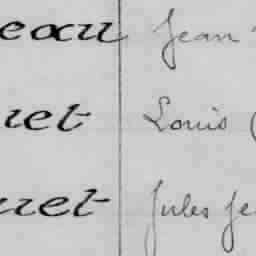 eau Jean
uet Louis (
uet Jules Je